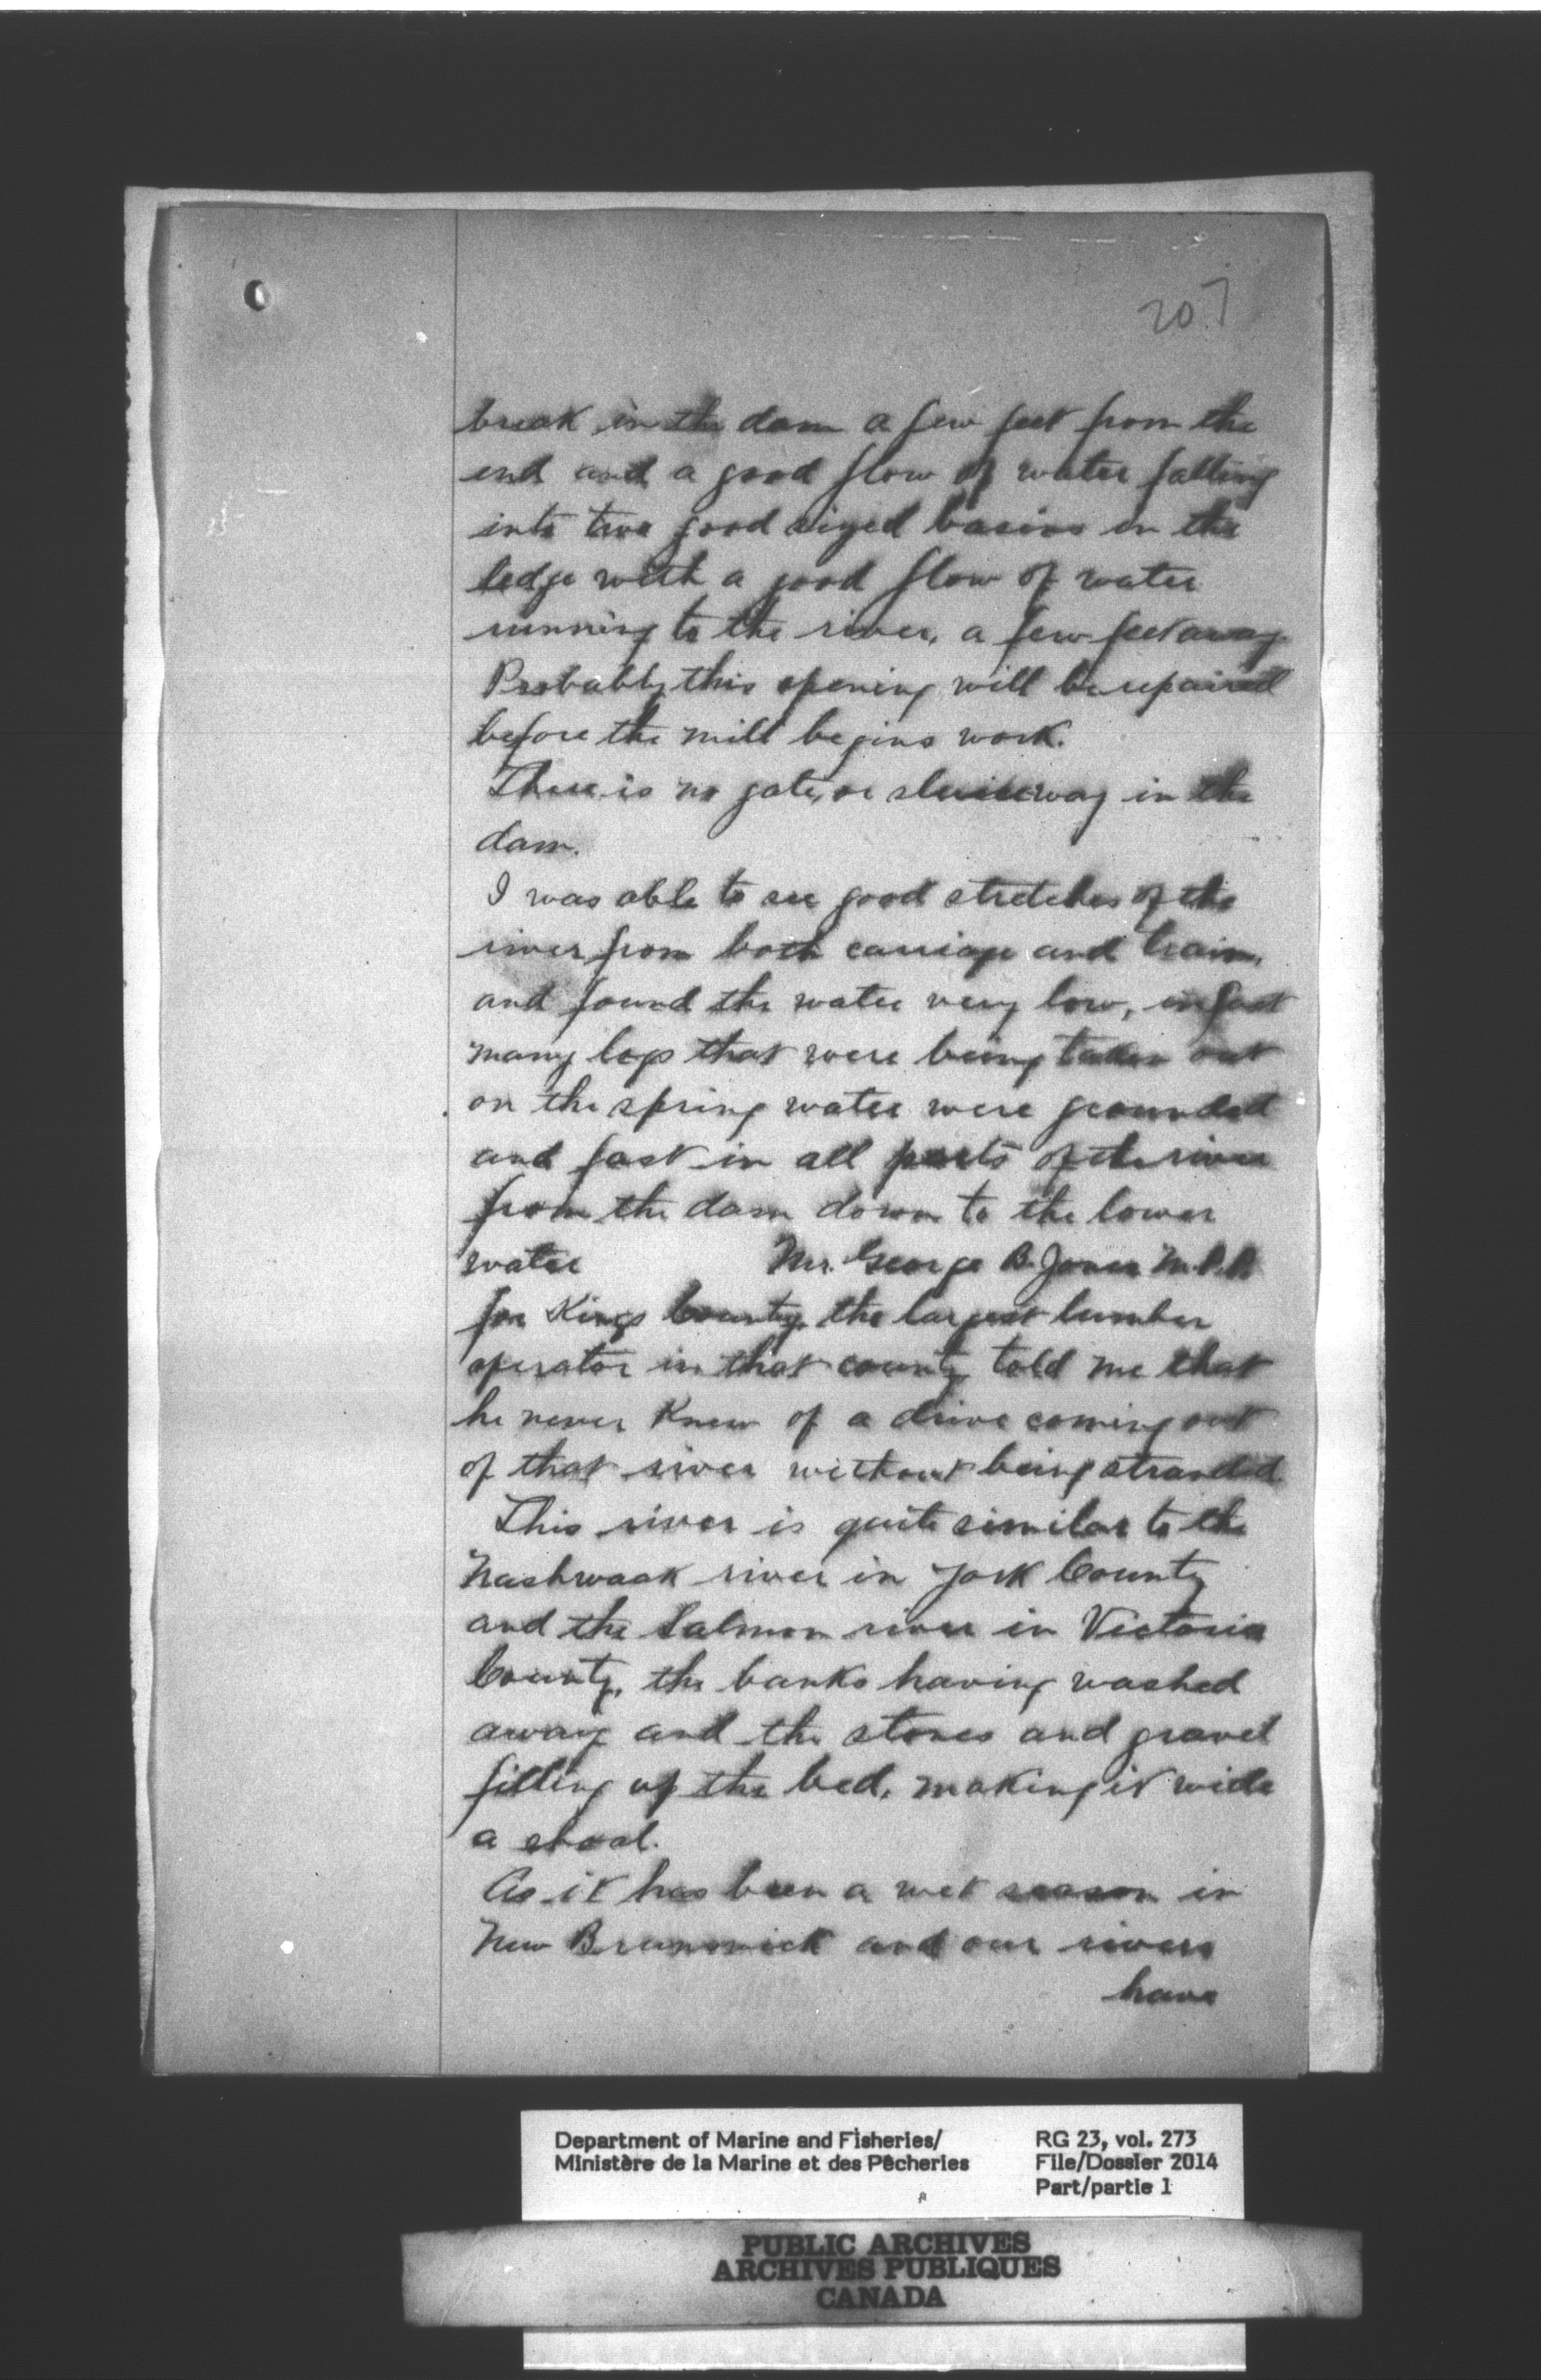 207
break in the dam a few feet from the
end and a good flow of water falling
into two good sized basins in the
ledge with a good flow of water
running to the river, a few feet away.
Probably this opening will be repaired
before the mill begins work.
There is no gate, or sluiceway in the
dam.
I was able to see good stretches of the
river from both carriage and train,
and found the water very low, in fact
many logs that were being taken out
on the spring water were grounded
and fast in all parts of the river
from the dam down to the lower
water Mr. George B. Jones M.P.P.
for Kings County, the largest lumber
operator in that county told me that
he never knew of a drive coming out
of that river without being stranded
This river is quite similar to the
Nashwaak river in York County
and the Salmon river in Victoria
County, the banks having washed
away and the stones and gravel
filling up the bed, making it wide
a shoal.
As it has been a wet season in
New Brunswick and our rivers
have
Department of Marine and Fisheries/
Ministère de la Marine et des Pêcheries
RG 23, vol. 273
File/Dossier 2014
Part/partie 1
PUBLIC ARCHIVES
ARCHIVES PUBLIQUES
CANADA